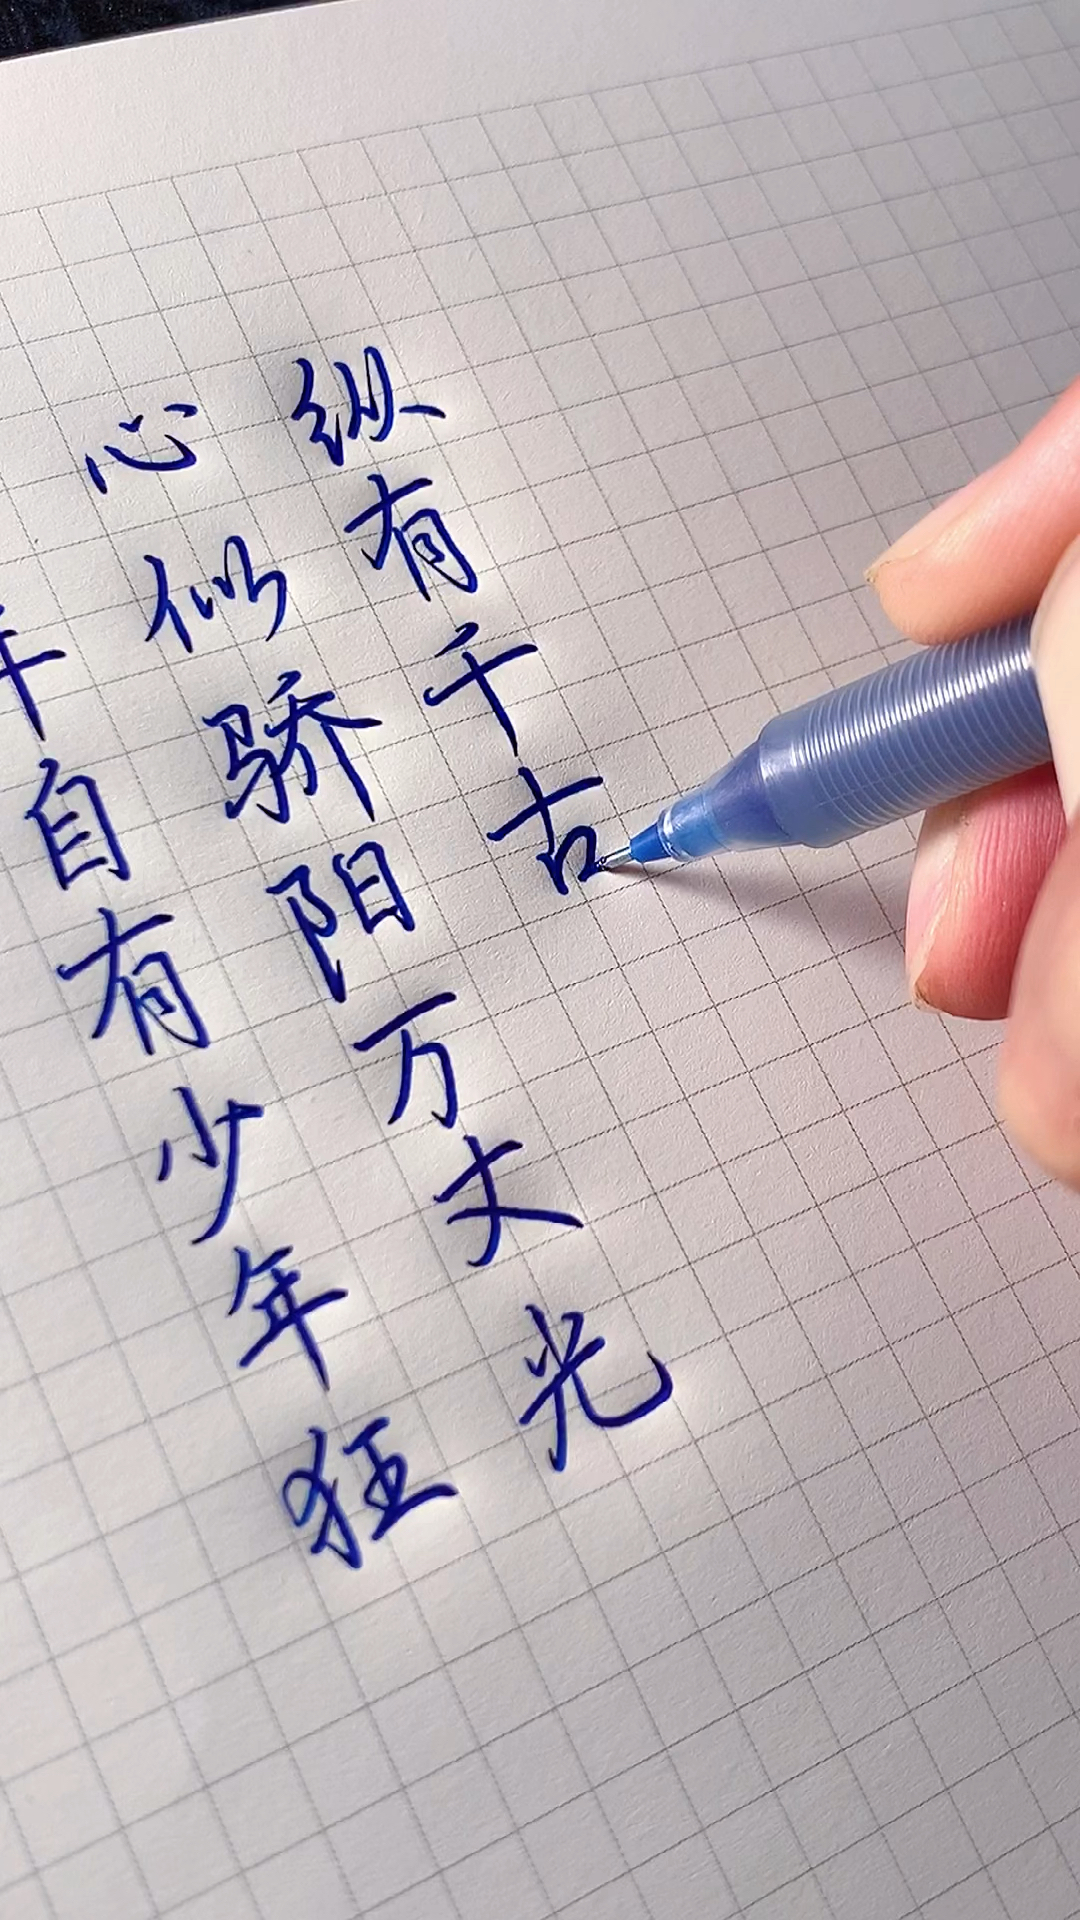 年自有少年狂
心似骄阳万丈光
纵有千古